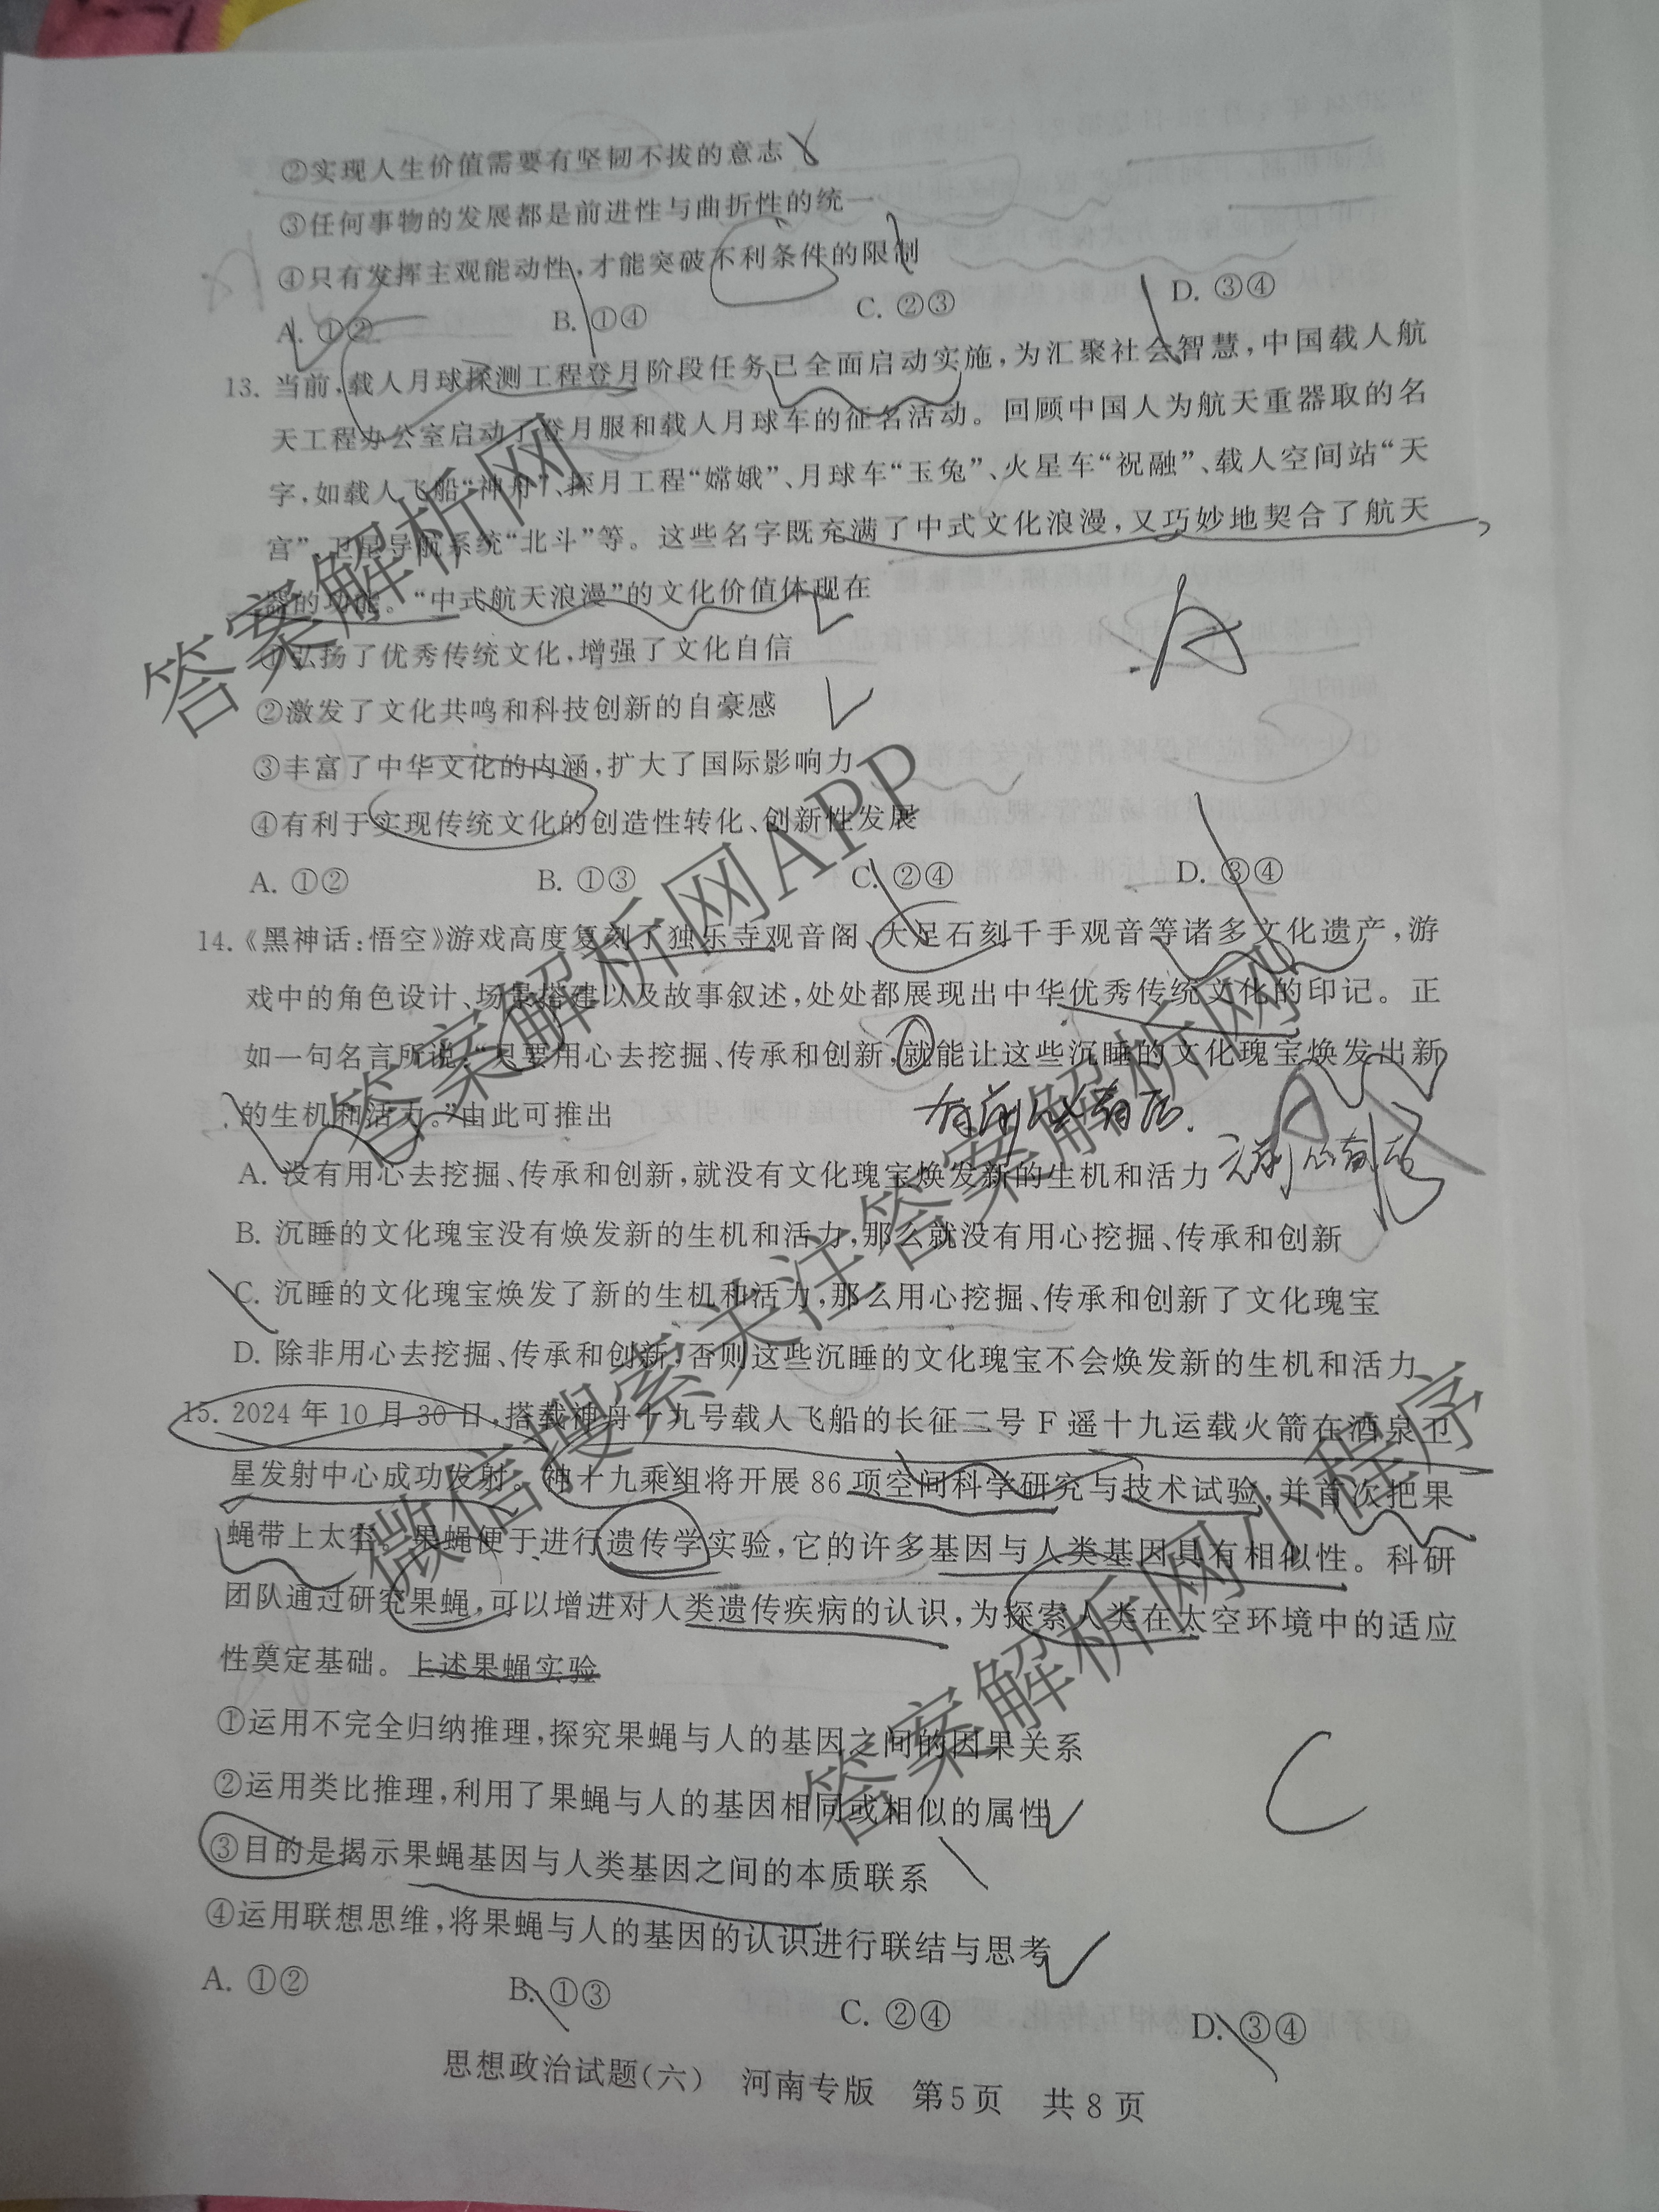 ②实现人生价值需要有坚韧不拔的意志
③任何事物的发展都是前进性与曲折性的统一
④只有发挥主观能动性,才能突破不利条件的限制
A. ①② B. ①④ C. ②③ D. ③④
13. 当前,载人月球探测工程登月阶段任务已全面启动实施,为汇聚社会智慧,中国载人航
天工程办公室启动了登月服和载人月球车的征名活动。回顾中国人为航天重器取的名
字,如载人飞船“神舟”、探月工程“嫦娥”、月球车“玉兔”、火星车“祝融”、载人空间站“天
宫”、卫星导航系统“北斗”等。这些名字既充满了中式文化浪漫,又巧妙地契合了航天
器的功能。“中式航天浪漫”的文化价值体现在
①弘扬了优秀传统文化,增强了文化自信
A
②激发了文化共鸣和科技创新的自豪感
③丰富了中华文化的内涵,扩大了国际影响力
④有利于实现传统文化的创造性转化、创新性发展
A. ①② B. ①③ C. ②④ D. ③④
14.《黑神话:悟空》游戏高度复刻了独乐寺观音阁、大足石刻千手观音等诸多文化遗产,游
戏中的角色设计、场景搭建以及故事叙述,处处都展现出中华优秀传统文化的印记。正
如一句名言所说:“只要用心去挖掘、传承和创新,就能让这些沉睡的文化瑰宝焕发出新
的生机和活力。”由此可推出
A. 没有用心去挖掘、传承和创新,就没有文化瑰宝焕发新的生机和活力
B. 沉睡的文化瑰宝没有焕发新的生机和活力,那么就没有用心挖掘、传承和创新
C. 沉睡的文化瑰宝焕发了新的生机和活力,那么用心挖掘、传承和创新了文化瑰宝
D. 除非用心去挖掘、传承和创新,否则这些沉睡的文化瑰宝不会焕发新的生机和活力
15. 2024年10月30日,搭载神舟十九号载人飞船的长征二号F遥十九运载火箭在酒泉卫
星发射中心成功发射。神十九乘组将开展86项空间科学研究与技术试验,并首次把果
蝇带上太空。果蝇便于进行遗传学实验,它的许多基因与人类基因具有相似性。科研
团队通过研究果蝇,可以增进对人类遗传疾病的认识,为探索人类在太空环境中的适应
性奠定基础。上述果蝇实验
①运用不完全归纳推理,探究果蝇与人的基因之间的因果关系
②运用类比推理,利用了果蝇与人的基因相同或相似的属性
C
③目的是揭示果蝇基因与人类基因之间的本质联系
④运用联想思维,将果蝇与人的基因的认识进行联结与思考
A. ①② B. ①③ C. ②④ D. ③④
思想政治试题(六) 河南专版 第5页 共8页
答案解析网
答案解析网APP
微信搜索关注答案解析网
答案解析网小程序